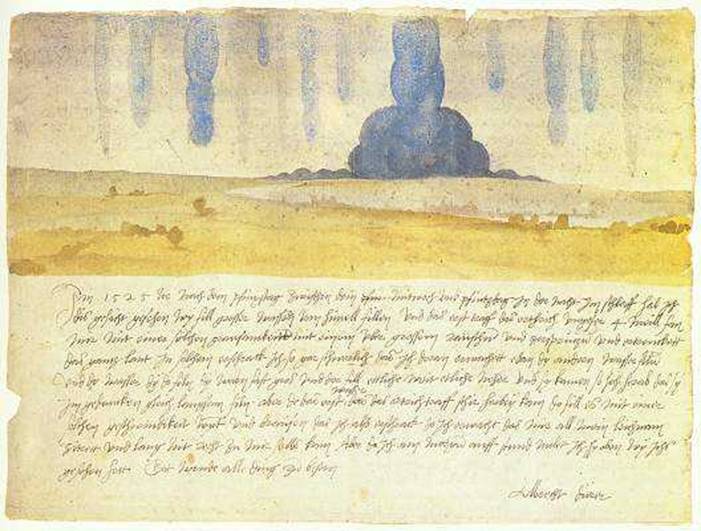 Im 1525 Jor nach dem pfinxstag zwischen dem Mitwoch und pfintzdag in der nacht im schlaff hab ich
dis gesicht gesehen wy fill grosser wassern vom himell fillen Und das erst traff das erthrich ungefer 4 meill fan
mir mit einer solchen grausamkeitt mit einem uber grossem raüschn und zersprützn und ertrenckett
das gantz lant In solchem erschrack ich so gar schwerlich das ich doran erwachett edan dy andern wasser filn
Und dy wasser dy do filn dy warn fast gros und der fill ettliche weit etliche neher und sy kamen so hoch herab das sy
im gedancken gleich langsam filn. aber do das erst wasser das das ertrich traff schir herbey kam do fill es mit einer
solchen geschwindikeit wynt und braüsen das ich also erschrack do ich erwacht das mir all mein leichnam
zitrett und lang nit recht zu mir selbs kam Aber do ich am morgn auff stund molet ich hy oben wy ichs
gesehen hett. Got wende alle ding zu besten
Albrecht Dürer